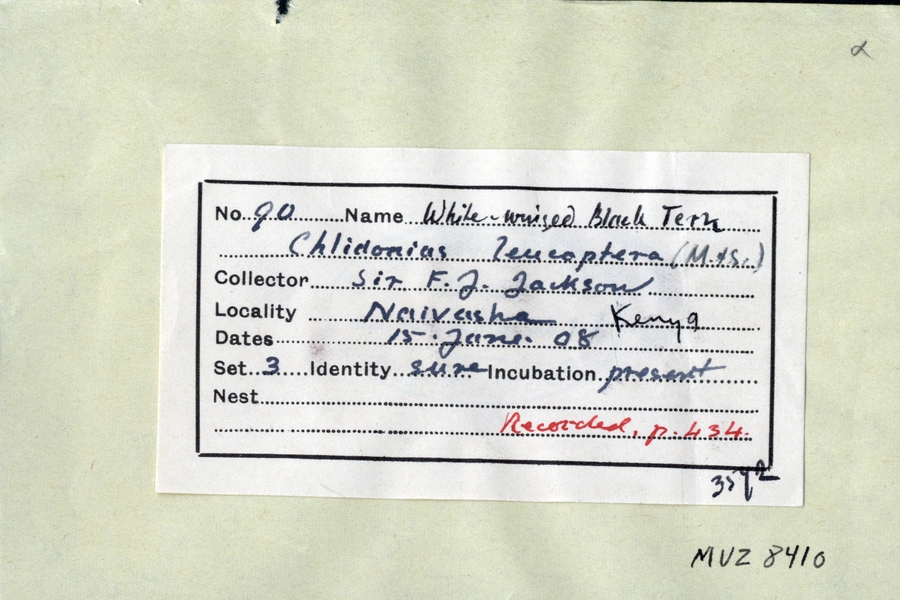 α
No. 90 Name White-winged Black Tern
Chlidonias leucoptera (M.&S.)
Collector Sir F. J. Jackson
Locality Naivasha Kenya
Dates 15. June. 08
Set 3 Identity sure Incubation present
Nest
Recorded, p. 434.
MUZ 8410